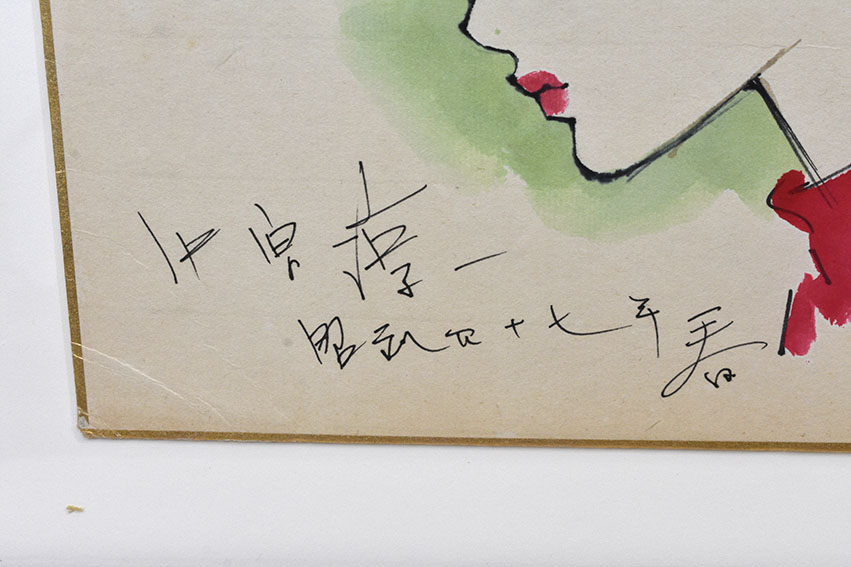 中原淳一
昭和四十七年春